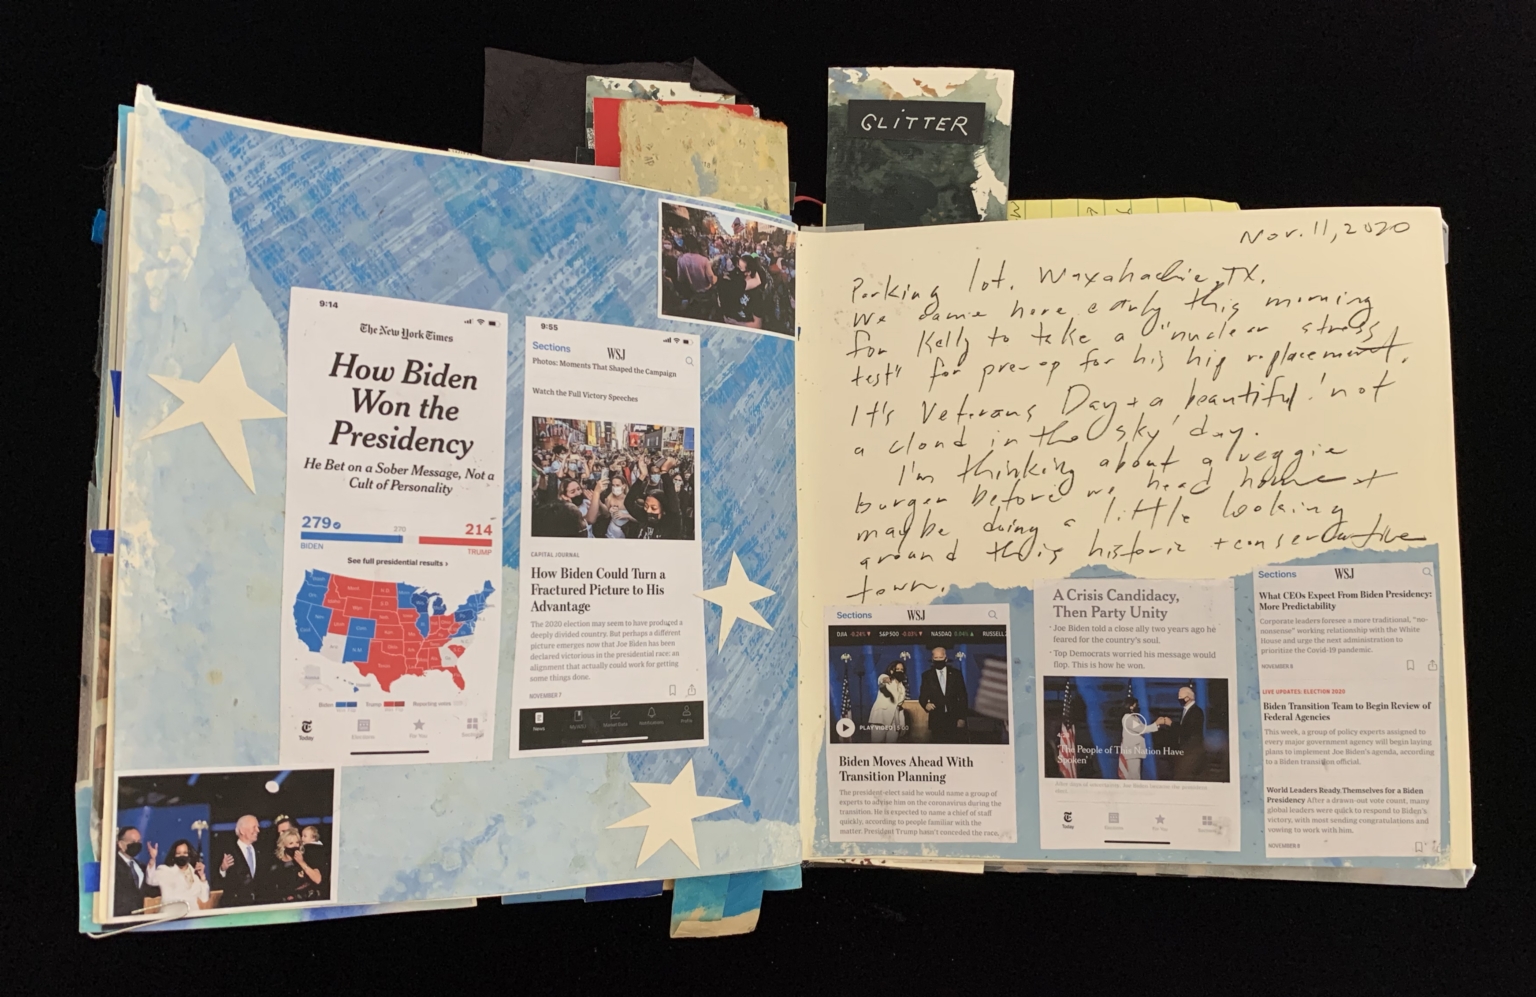 GLITTER
9:14
The New York Times
How Biden
Won the
Presidency
He Bet on a Sober Message, Not a
Cult of Personality
279
270
214
BIDEN
TRUMP
See full presidential results
Biden
Trump
Reporting
Today
Elections
For You
Sections
9:55
Sections
WSJ
Photos: Moments That Shaped the Campaign
Watch the Full Victory Speeches
CAPITAL JOURNAL
How Biden Could Turn a
Fractured Picture to His
Advantage
The 2020 election may seem to have produced a
deeply divided country. But perhaps a different
picture emerges now that Joe Biden has been
declared victorious in the presidential race: an
alignment that actually could work for getting
some things done.
NOVEMBER 7
News
My WSJ
Market Data
Notifications
Profile
Nov. 11, 2020
Parking lot. Waxahachie, TX.
We came here early this morning
for Kelly to take a "nuclear stress
test" for pre-op for his hip replacement.
It's Veterans Day + a beautiful 'not
a cloud in the sky' day.
I'm thinking about a veggie
burger before we head home +
maybe doing a little looking
around this historic + conservative
town.
Sections
WSJ
DJIA -0.24% S&P 500 -0.03% NASDAQ RUSSELL
PLAY VIDEO
Biden Moves Ahead With
Transition Planning
The president-elect said he would name a group of
experts to advise him on the coronavirus during the
transition. He is expected to name a chief of staff
quickly, according to people familiar with the
matter. President Trump hasn't conceded the race.
A Crisis Candidacy,
Then Party Unity
· Joe Biden told a close ally two years ago he
feared for the country's soul.
· Top Democrats worried his message would
flop. This is how he won.
'The People of This Nation Have
Spoken'
Today
For You
Sections
Sections
WSJ
What CEOs Expect From Biden Presidency:
More Predictability
Corporate leaders foresee a more traditional, "no-
nonsense" working relationship with the White
House and urge the next administration to
prioritize the Covid-19 pandemic.
NOVEMBER 8
LIVE UPDATES: ELECTION 2020
Biden Transition Team to Begin Review of
Federal Agencies
This week, a group of policy experts assigned to
every major government agency will begin laying
plans to implement Joe Biden's agenda, according
to a Biden transition official.
World Leaders Ready Themselves for a Biden
Presidency After a drawn-out vote count, many
global leaders were quick to respond to Biden's
victory, with most sending congratulations and
vowing to work with him.
NOVEMBER 8